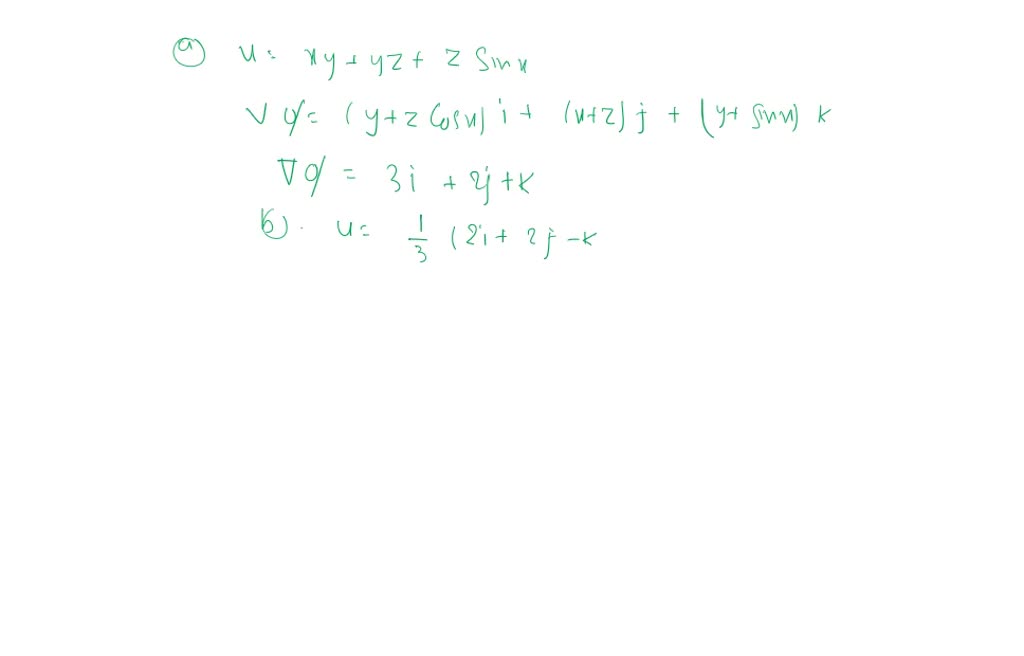 (a) u = xy + yz + z sin x
∇φ = (y + z cos x) i + (x + z) j + (y + sin x) k
∇φ = 3i + 2j + k
(b). u = 1/3 (2i + 2j - k